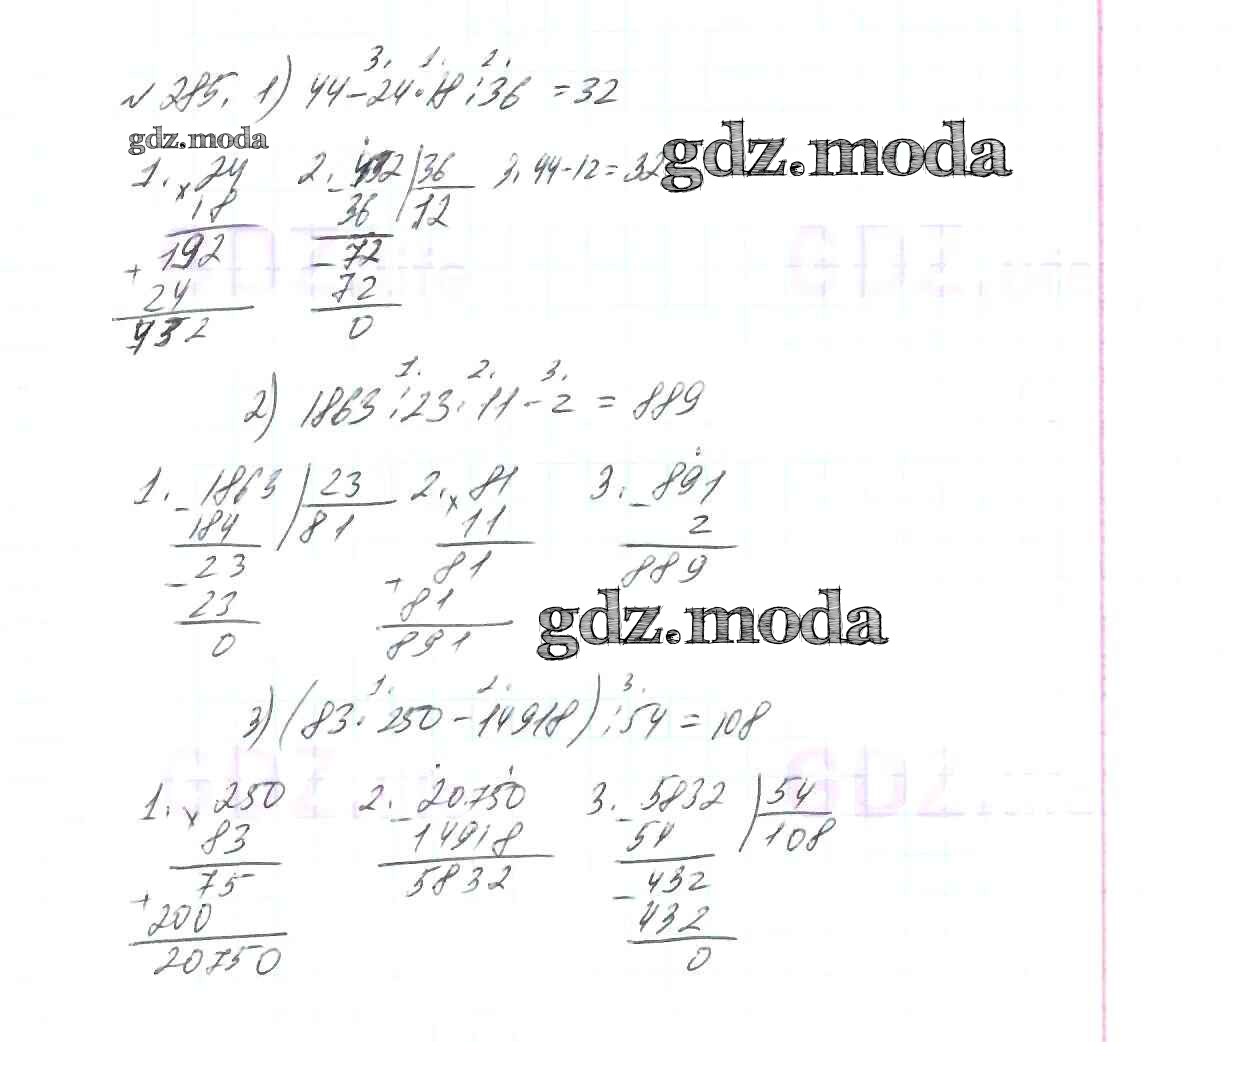 3. 1. 2.
№ 285. 1) 44-24·18:36 = 32
gdz.moda
gdz.moda
1. × 24 2. - 432 | 36 3. 44-12=32
18 36 12
192 - 72
+ 24 72
432 0
1. 2. 3.
2) 1863:23·11-2 = 889
1. - 1863 | 23 2. × 81 3. - 891
184 81 11 2
- 23 81 889
23 + 81
0 891
gdz.moda
1. 2. 3.
3) (83·250-14918):54=108
1. × 250 2. - 20750 3. - 5832 | 54
83 14918 54 108
75 5832 - 432
+ 200 432
20750 0